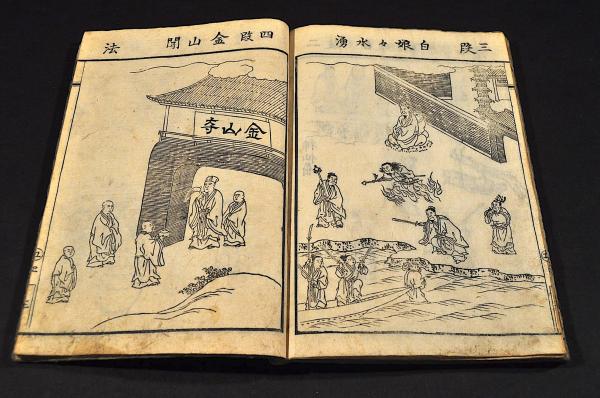 三段 白娘々水湧
四段 金山開法
金山寺